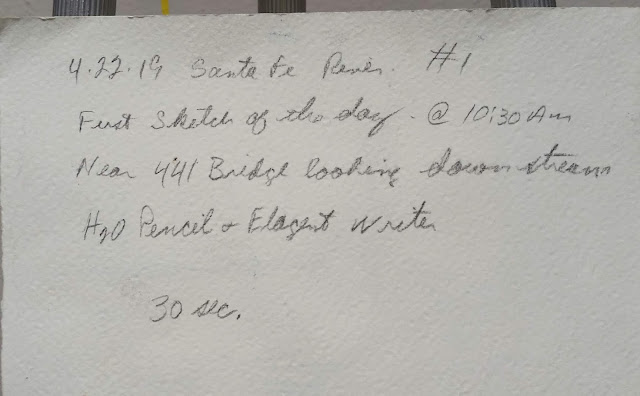 4.22.19 Santa Fe River. #1
First Sketch of the day. @ 10:30 Am
Near 441 Bridge looking down stream
H2O Pencil + Elagent Writer
30 sec.